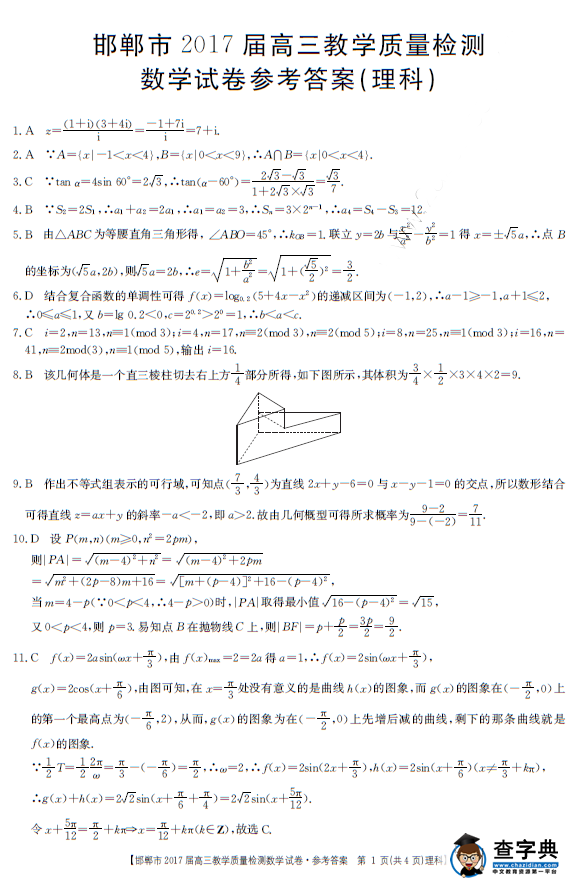 邯郸市 2017 届高三教学质量检测
数学试卷参考答案(理科)
1. A z=(1+i)(3+4i)/i=(-1+7i)/i=7+i.
2. A ∵A={x|-1<x<4},B={x|0<x<9},∴A∩B={x|0<x<4}.
3. C ∵tan α=4sin 60°=2√3,∴tan(α-60°)=(2√3-√3)/(1+2√3×√3)=√3/7.
4. B ∵S₂=2S₁,∴a₁+a₂=2a₁,∴a₁=a₂=3,∴Sₙ=3×2ⁿ⁻¹,∴a₄=S₄-S₃=12.
5. B 由△ABC为等腰直角三角形得,∠ABO=45°,∴k_OB=1.联立 y=2b 与x²/a²-y²/b²=1得 x=±√5a,∴点 B
的坐标为(√5a,2b),则√5a=2b,∴e=√(1+b²/a²)=√(1+(√5/2)²)=3/2.
6. D 结合复合函数的单调性可得 f(x)=log₀.₂(5+4x-x²)的递减区间为(-1,2),∴a-1≥-1,a+1≤2,
∴0≤a≤1,又 b=lg 0.2<0,c=2⁰·²>2⁰=1,∴b<a<c.
7. C i=2,n=13,n≡1(mod 3);i=4,n=17,n≡2(mod 3),n≡2(mod 5);i=8,n=25,n≡1(mod 3);i=16,n=
41,n≡2mod(3),n≡1(mod 5),输出 i=16.
8. B 该几何体是一个直三棱柱切去右上方1/4部分所得,如下图所示,其体积为3/4×1/2×3×4×2=9.
9. B 作出不等式组表示的可行域,可知点(7/3,4/3)为直线 2x+y-6=0 与 x-y-1=0 的交点,所以数形结合
可得直线 z=ax+y 的斜率-a<-2,即 a>2.故由几何概型可得所求概率为(9-2)/(9-(-2))=7/11.
10. D 设 P(m,n)(m≥0,n²=2pm),
则|PA|=√((m-4)²+n²)=√((m-4)²+2pm)
=√(m²+(2p-8)m+16)=√([m+(p-4)]²+16-(p-4)²),
当 m=4-p(∵0<p<4,∴4-p>0)时,|PA|取得最小值√(16-(p-4)²)=√15,
又 0<p<4,则 p=3.易知点 B 在抛物线 C 上,则|BF|=p+p/2=3p/2=9/2.
11. C f(x)=2asin(ωx+π/3),由 f(x)max=2=2a 得 a=1,∴f(x)=2sin(ωx+π/3),
g(x)=2cos(x+π/6),由图可知,在 x=π/3处没有意义的是曲线 h(x)的图象,而 g(x)的图象在(-π/2,0)上
的第一个最高点为(-π/6,2),从而,g(x)的图象为在(-π/2,0)上先增后减的曲线,剩下的那条曲线就是
f(x)的图象.
∵1/2T=1/2 2π/ω=π/3-(-π/6)=π/2,∴ω=2,∴f(x)=2sin(2x+π/3),h(x)=2sin(x+π/6)(x≠π/3+kπ),
∴g(x)+h(x)=2√2sin(x+π/6+π/4)=2√2sin(x+5π/12).
令 x+5π/12=π/2+kπ⇒x=π/12+kπ(k∈Z),故选 C.
【邯郸市 2017 届高三教学质量检测数学试卷·参考答案 第 1 页(共 4 页)理科】
查字典
www.chazidian.com
中文教育资源第一平台